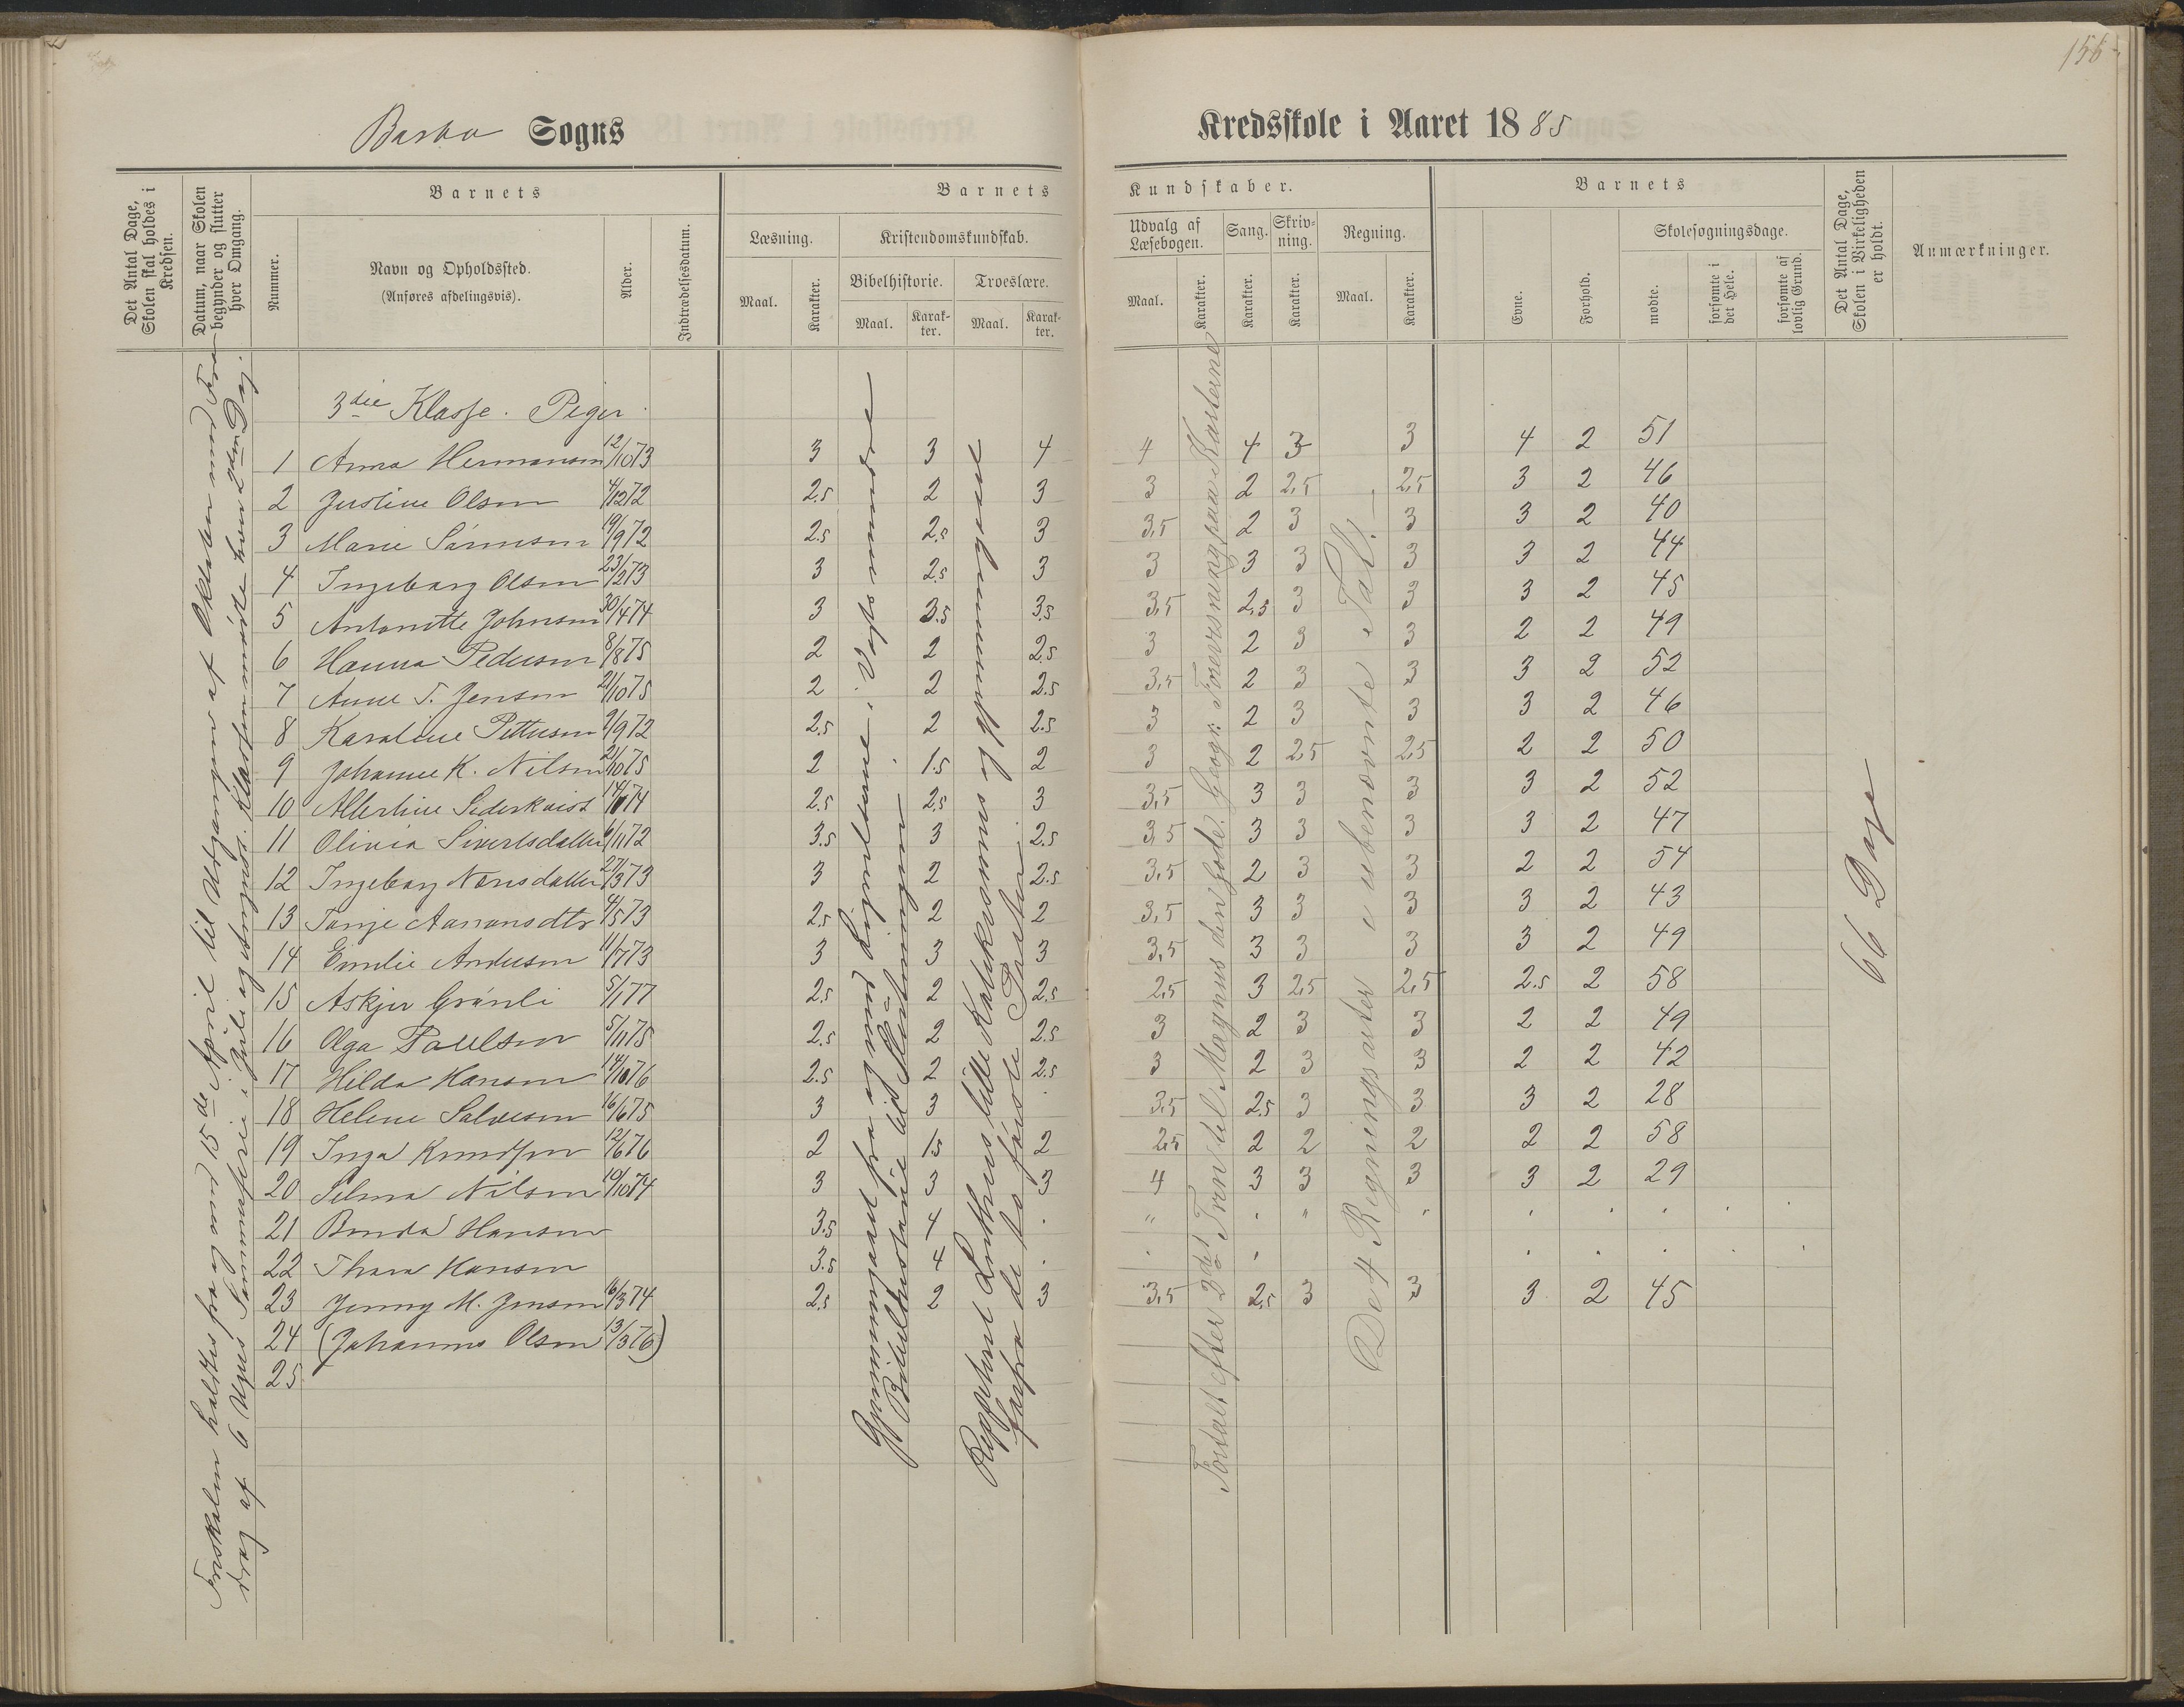 155
Barbo Sogns Kredsskole i Aaret 1885
Det Antal Dage, Skolen skal holdes i Kredsen.
Datum, naar Skolen begynder og slutter hver Omgang.
Barnets
Nummer.
Navn og Opholdssted.
(Anføres afdelingsvis).
Alder.
Indtrædelsesdatum.
Barnets Kundskaber.
Læsning.
Maal. Karakter.
Kristendomskundskab.
Bibelhistorie. Troeslære.
Maal. Karakter. Maal. Karakter.
Udvalg af Læsebogen.
Maal. Karakter.
Sang. Karakter.
Skrivning. Karakter.
Regning.
Maal. Karakter.
Barnets
Evne. Forhold.
Skolesøgningsdage.
mødte. forsømte i det Hele. forsømte af lovlig Grund.
Det Antal Dage, Skolen i Virkeligheden er holdt.
Anmærkninger.
3die Klasse. Piger.
1 Anna Hermansen 12/10 73 3 3 4 4 4 3 3 4 2 51
2 Justine Olsen 4/12 72 2.5 2 3 3 2 2,5 2,5 3 2 46
3 Marie Sørensen 19/9 72 2.5 2.5 3 3,5 2 3 3 3 2 40
4 Ingeborg Olsen 23/2 73 3 2.5 3 3 3 3 3 3 2 44
5 Antonette Johnsen 30/4 74 3 3.5 3.5 3,5 2,5 3 3 3 2 45
6 Hanna Pedersen 8/8 75 2 2 2.5 3 2 3 3 2 2 49
7 Anne T. Jensen 21/10 75 2 2 2.5 3,5 2 3 3 3 2 52
8 Karoline Pettersen 9/9 72 2.5 2 2.5 3 2 3 3 3 2 46
9 Johanne K. Nilsen 21/10 75 2 1.5 2 3 2 2,5 2,5 2 2 50
10 Albertine Sederkvist 14/6 74 2.5 2.5 3 3,5 3 3 3 3 2 52
11 Olivia Sivertsdatter 6/11 72 3.5 3 2.5 3,5 3 3 3 3 2 47
12 Ingeborg Nærisdatter 27/3 73 3 2 2.5 3,5 2 3 3 2 2 54
13 Tonje Aanonsdtr 4/5 73 2.5 2 2 3,5 3 3 3 3 2 43
14 Emilie Andersen 11/7 73 3 3 3 3,5 3 3 3 3 2 49
15 Askjer Grønli 5/1 77 2.5 2 2.5 2,5 3 2,5 2,5 2.5 2 58
16 Olga Paulsen 5/11 75 2.5 2 2.5 3 2 3 3 2 2 49
17 Hilda Hansen 14/10 76 2.5 2 2.5 3 2 3 3 2 2 42
18 Helene Salvesen 16/6 75 3 3 3,5 2,5 3 3 3 2 28
19 Inga Knudsen 12/6 76 2 1.5 2 2,5 2 2 2 2 2 58
20 Selma Nilsen 10/10 74 3 3 3 4 3 3 3 3 2 29
21 Hansen 3.5 4
22 Thora Hansen 3.5 4
23 Jenny M. Jensen 6/3 74 2.5 2 3 3,5 2,5 3 3 3 2 45
24 (Johanne Olsen 13/3 76)
25
Froskolen holdtes fra og med 15de April til Udgangen af Oktober med Fradrag af 6 Ugers Sommerferie i Juli og August. Klassen mødte hver 2den Dag.
Gjennemgaaet fra og med Lignelserne i Vognmanns Bibelhistorie til Slutningen.
Repeteret Luthers lille Katekismus og gjennemgaaet forfra de to første Parter.
Fortalt efter 2det Trin til Magnus den Gode. Geogr: Foevisning paa Karterne
De 4 Regningsarter i ubenævnte Tall.
66 Dage